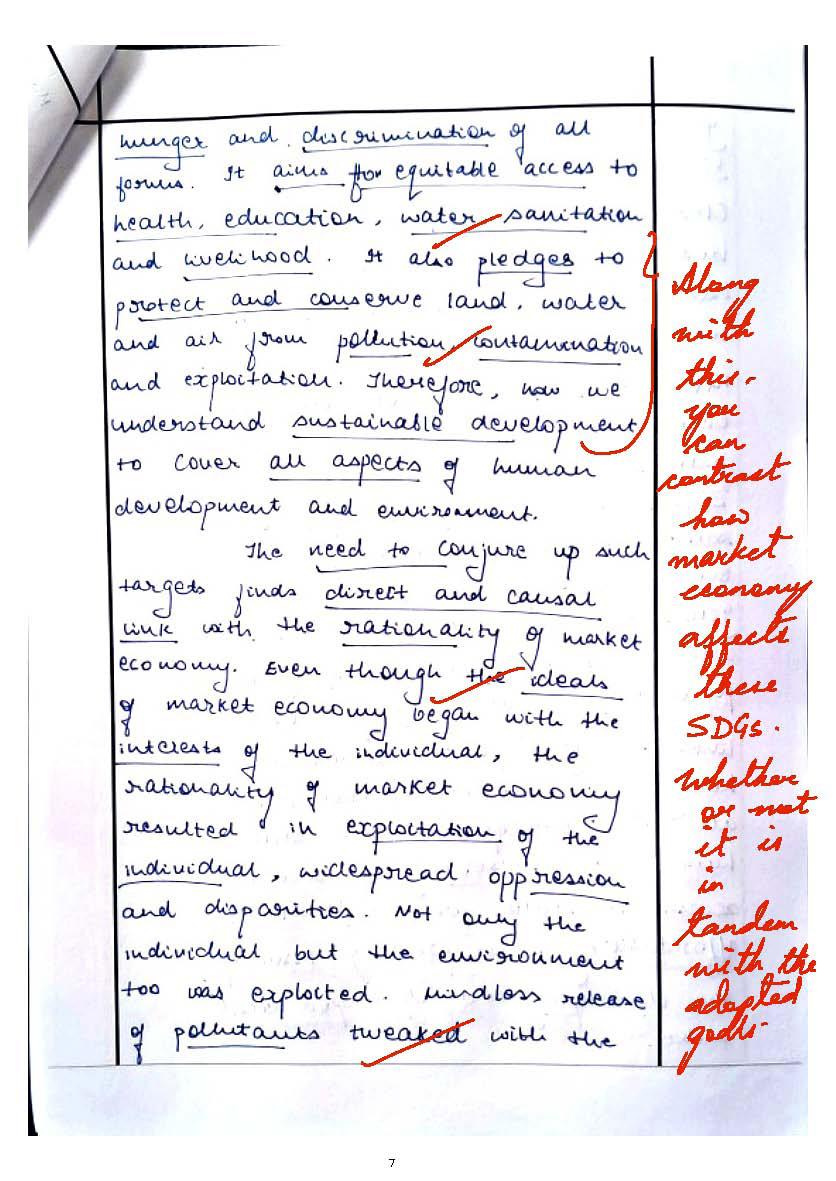 hunger and discrimination of all
forms. It aims for equitable access to
health, education, water sanitation
and livelihood. It also pledges to
protect and conserve land, water
and air from pollution, contamination
and exploitation. Therefore, now we
understand sustainable development
to cover all aspects of human
development and environment.
The need to conjure up such
targets finds direct and causal
link with the rationality of market
economy. Even though the ideals
of market economy began with the
interests of the individual, the
rationality of market economy
resulted in exploitation of the
individual, widespread oppression
and disparities. Not only the
individual but the environment
too was exploited. Mindless release
of pollutants tweaked with the
Along
with
this,
you
can
contrast
how
market
economy
affects
these
SDGs.
whether
or not
it is
in
tandem
with the
adopted
goals.
7